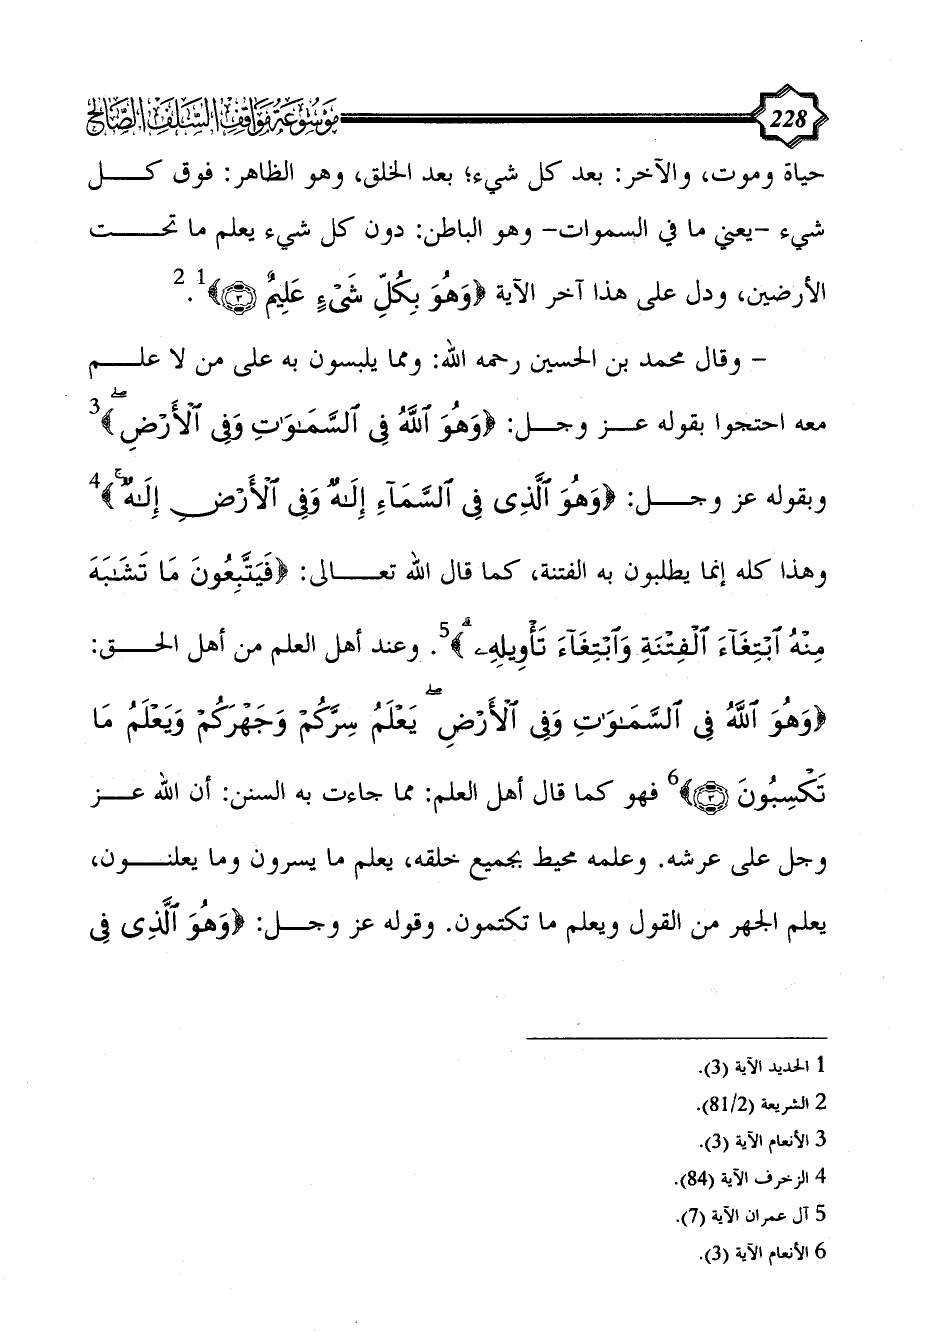 228 موسوعة مواقف السلف الصالح
حياة وموت، والآخر: بعد كل شيء؛ بعد الخلق، وهو الظاهر: فوق كل
شيء -يعني ما في السموات- وهو الباطن: دون كل شيء يعلم ما تحت
الأرضين، ودل على هذا آخر الآية ﴿وَهُوَ بِكُلِّ شَيْءٍ عَلِيمٌ ٣﴾1.2
- وقال محمد بن الحسين رحمه الله: ومما يلبسون به على من لا علم
معه احتجوا بقوله عز وجل: ﴿وَهُوَ ٱللَّهُ فِي ٱلسَّمَٰوَٰتِ وَفِي ٱلْأَرْضِ ۖ﴾3
وبقوله عز وجل: ﴿وَهُوَ ٱلَّذِي فِي ٱلسَّمَآءِ إِلَٰهٌ وَفِي ٱلْأَرْضِ إِلَٰهٌ ۚ﴾4
وهذا كله إنما يطلبون به الفتنة، كما قال الله تعالى: ﴿فَيَتَّبِعُونَ مَا تَشَٰبَهَ
مِنْهُ ٱبْتِغَآءَ ٱلْفِتْنَةِ وَٱبْتِغَآءَ تَأْوِيلِهِۦ ۗ﴾5. وعند أهل العلم من أهل الحق:
﴿وَهُوَ ٱللَّهُ فِي ٱلسَّمَٰوَٰتِ وَفِي ٱلْأَرْضِ ۖ يَعْلَمُ سِرَّكُمْ وَجَهْرَكُمْ وَيَعْلَمُ مَا
تَكْسِبُونَ ٣﴾6 فهو كما قال أهل العلم: مما جاءت به السنن: أن الله عز
وجل على عرشه. وعلمه محيط بجميع خلقه، يعلم ما يسرون وما يعلنون،
يعلم الجهر من القول ويعلم ما تكتمون. وقوله عز وجل: ﴿وَهُوَ ٱلَّذِي فِي
1 الحديد الآية (3).
2 الشريعة (81/2).
3 الأنعام الآية (3).
4 الزخرف الآية (84).
5 آل عمران الآية (7).
6 الأنعام الآية (3).